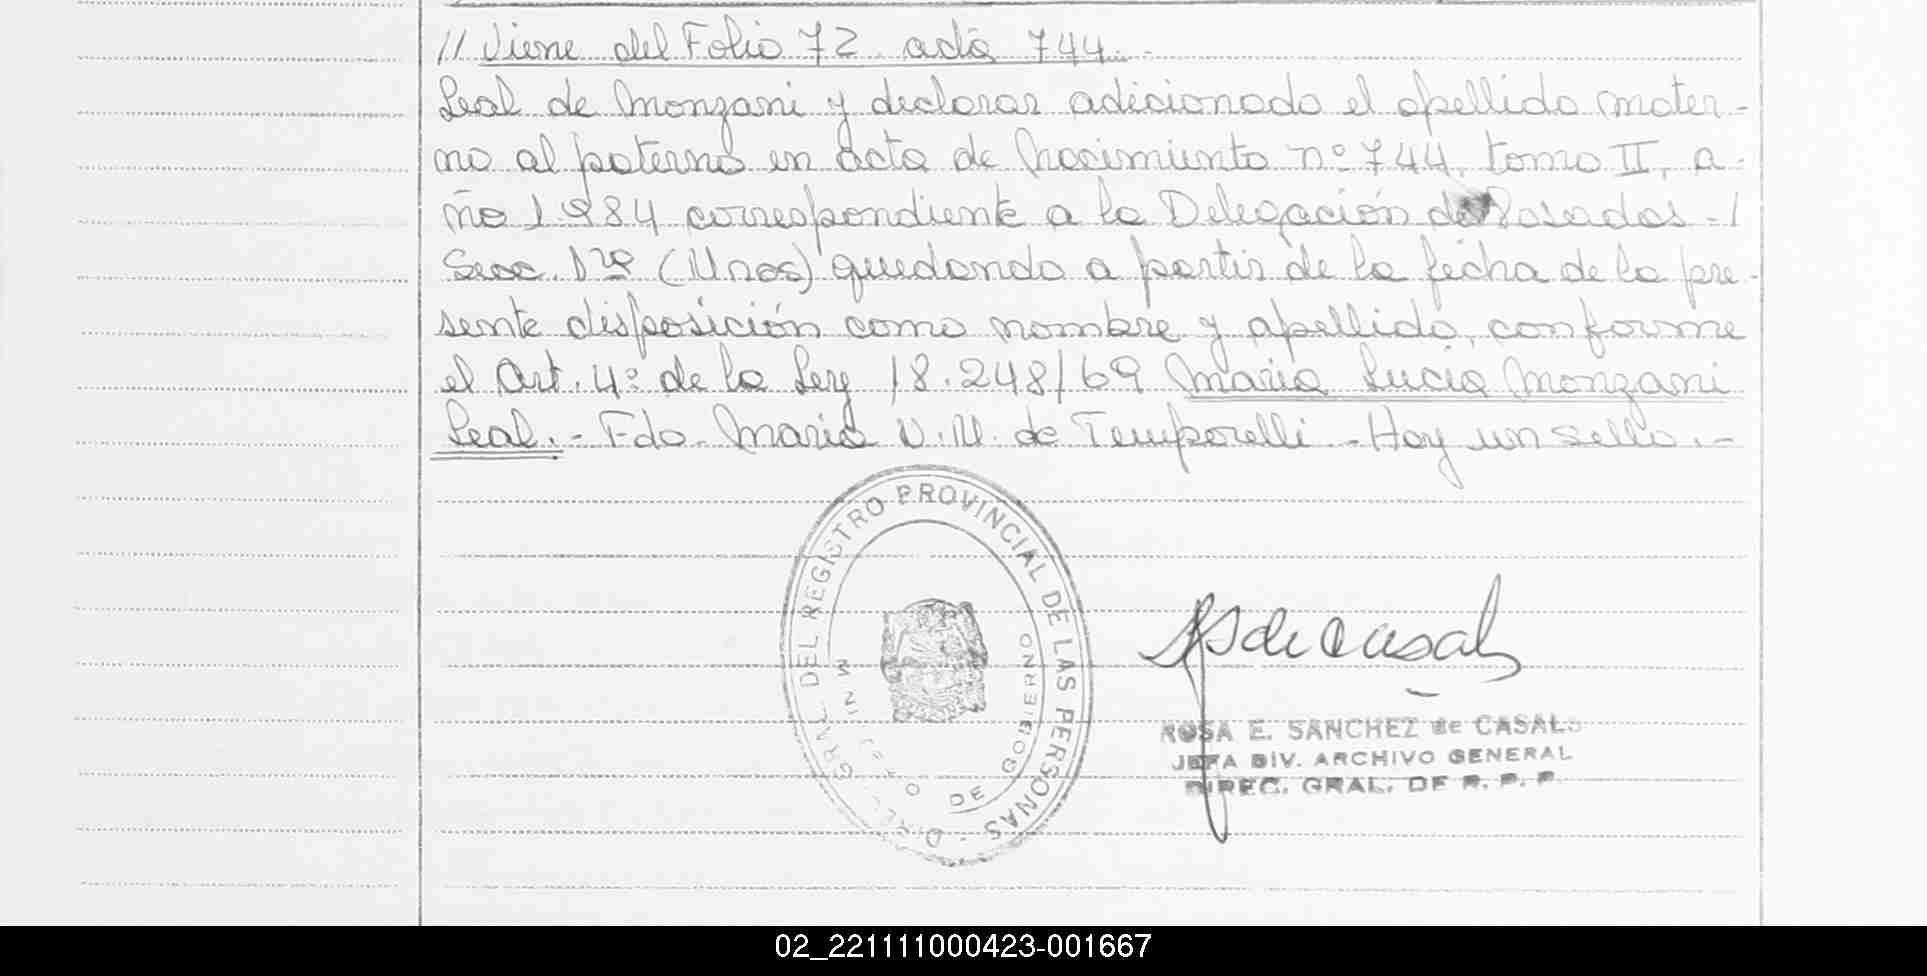 // Viene del Folio 72 acta 744.-
Leal de Monzani y declarar adicionado el apellido mater-
no al paterno en acta de Nacimiento nº 744, tomo II, a-
ño 1.984 correspondiente a la Delegación de Posadas -/
Secc. 1ra (Misiones) quedando a partir de la fecha de la pre-
sente disposición como nombre y apellido, conforme
el Art. 4º de la Ley 18.248/69 Maria Lucia Monzani
Leal.- Fdo. Maria V. M. de Temporelli - Hay un sello.-
DIREC. GRAL. DEL REGISTRO PROVINCIAL DE LAS PERSONAS
DE GOBIERNO
ROSA E. SANCHEZ de CASALS
JEFA DIV. ARCHIVO GENERAL
DIREC. GRAL. DE R. P. P.
02_221111000423-001667